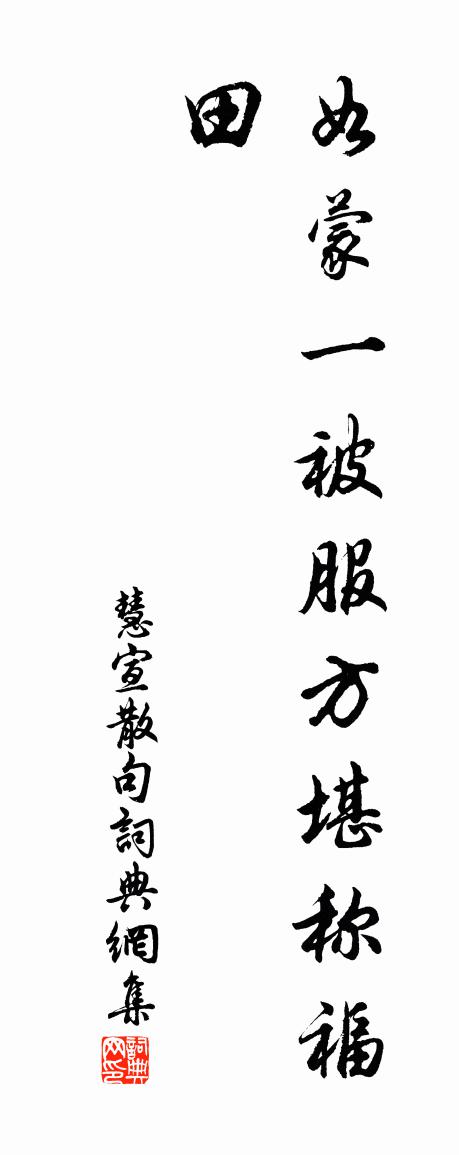 如蒙一被服方堪称福
田
慧宣散句詞典網集
詞典网印